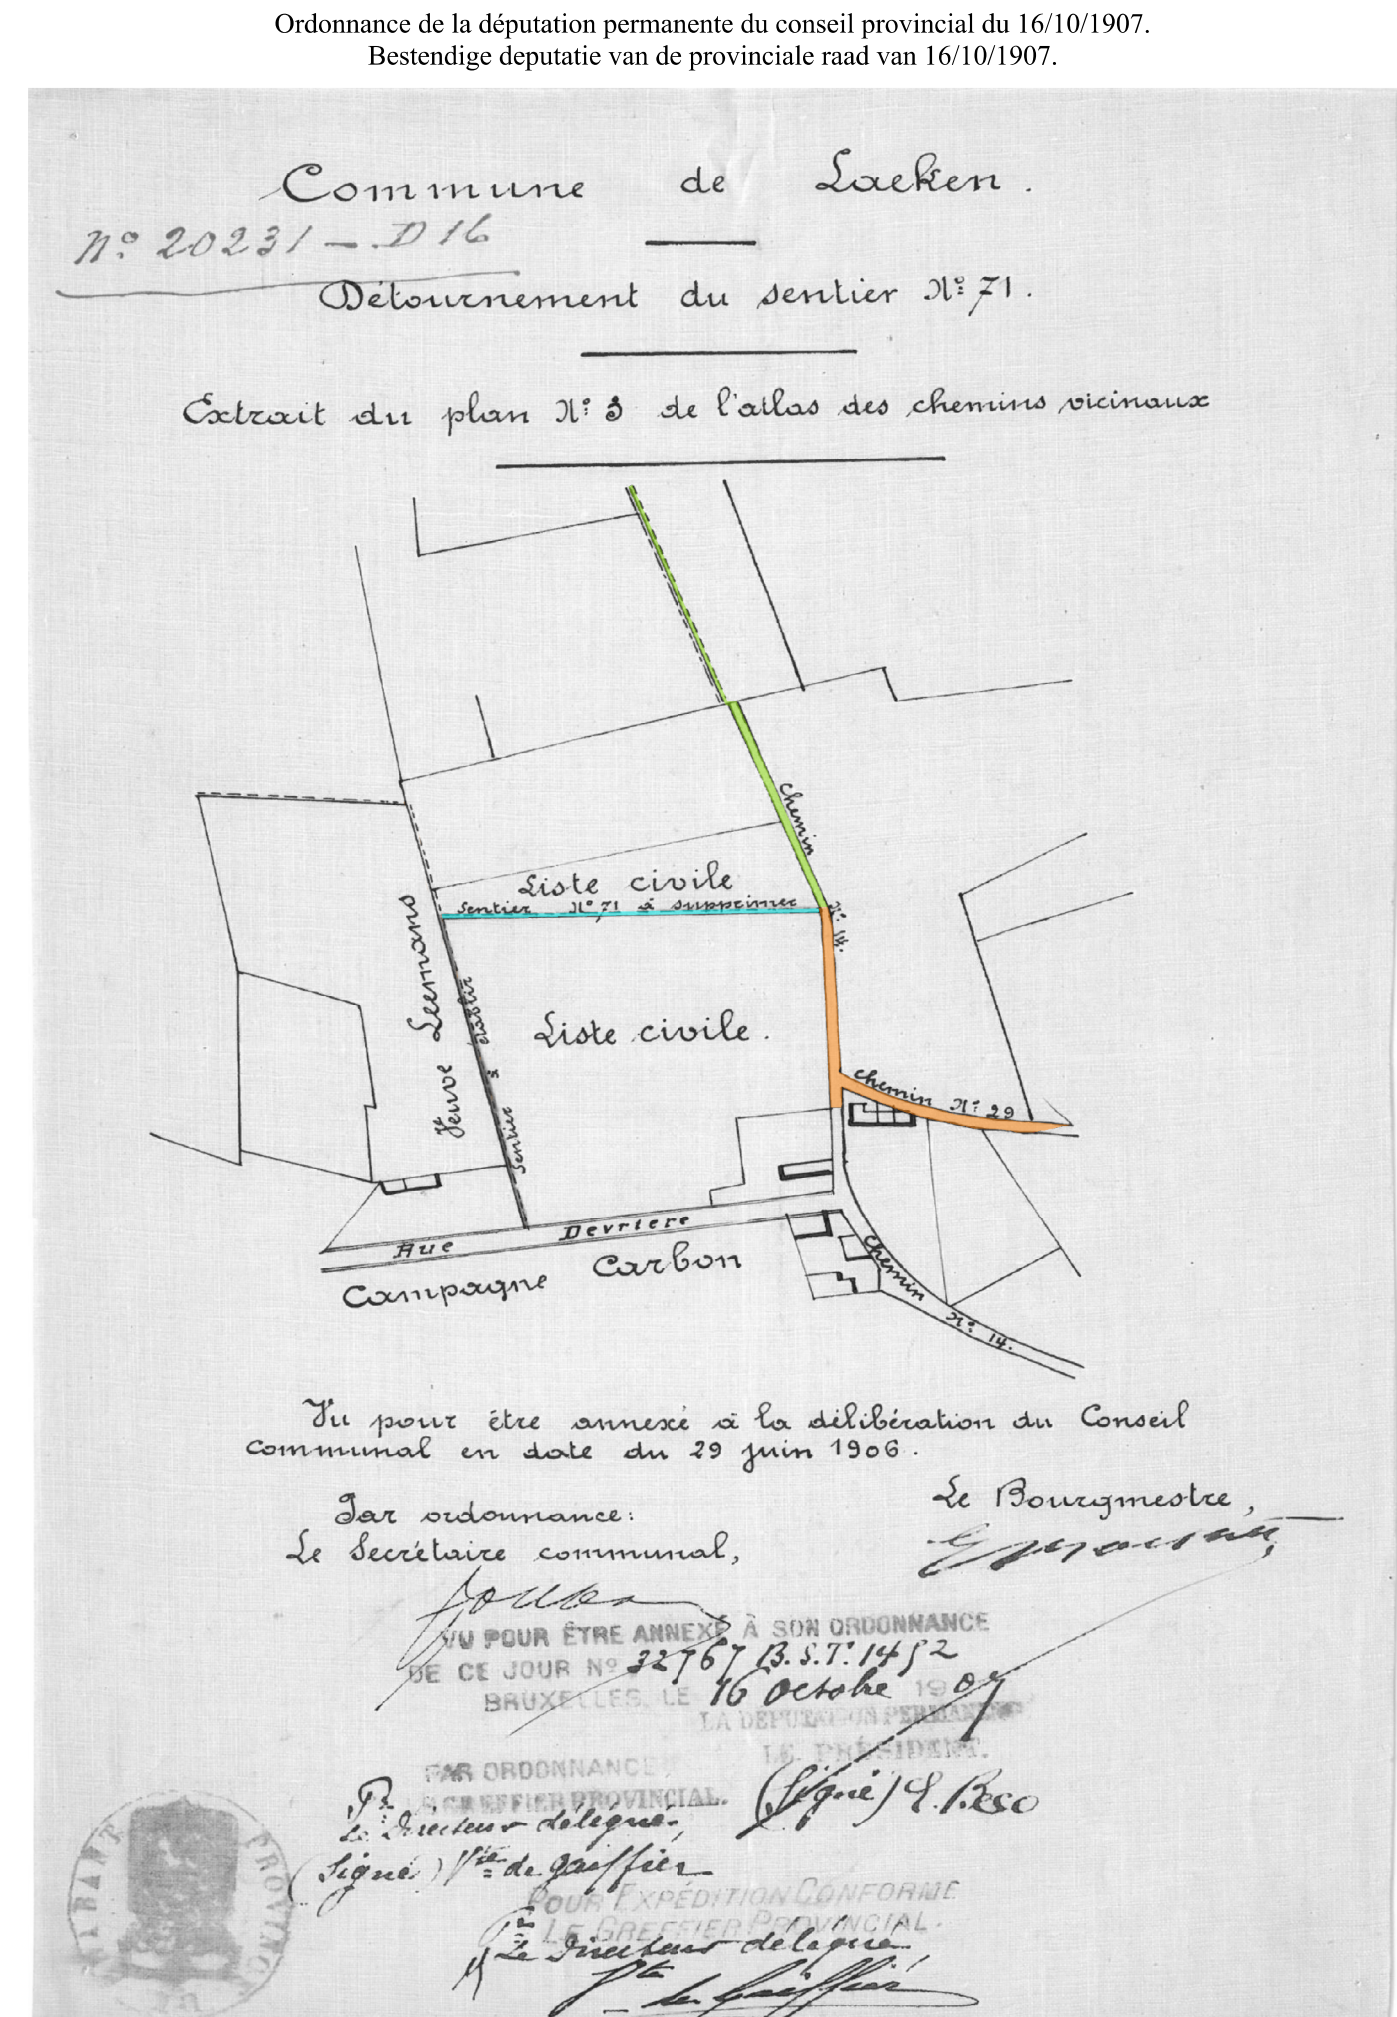 Ordonnance de la députation permanente du conseil provincial du 16/10/1907.
Bestendige deputatie van de provinciale raad van 16/10/1907.
Commune de Laeken.
N° 20231 - D16
Détournement du sentier N° 71.
Extrait du plan N° 3 de l'atlas des chemins vicinaux
Chemin
N° 14.
Liste civile
Sentier N° 71 à supprimer
Veuve Leemans
Sentier à établir
Liste civile.
Chemin N° 29
Rue Devriere
Campagne Carbon
Chemin N° 14.
Vu pour être annexé à la délibération du Conseil
communal en date du 29 juin 1906.
Le Bourgmestre,
Par ordonnance:
Le Secrétaire communal,
VU POUR ÊTRE ANNEXÉ À SON ORDONNANCE
DE CE JOUR N° 32767 B.S.T. 1452
BRUXELLES, LE 16 Octobre 1907
LA DÉPUTATION PERMANENTE
LE PRÉSIDENT.
PAR ORDONNANCE
LE GREFFIER PROVINCIAL.
(Signé) E. Beco
Le Directeur délégué,
(Signé) Vte de Gaiffier
POUR EXPÉDITION CONFORME
LE GREFFIER PROVINCIAL.
Le Directeur délégué,
Vte de Gaiffier
BRABANT PROVINCE